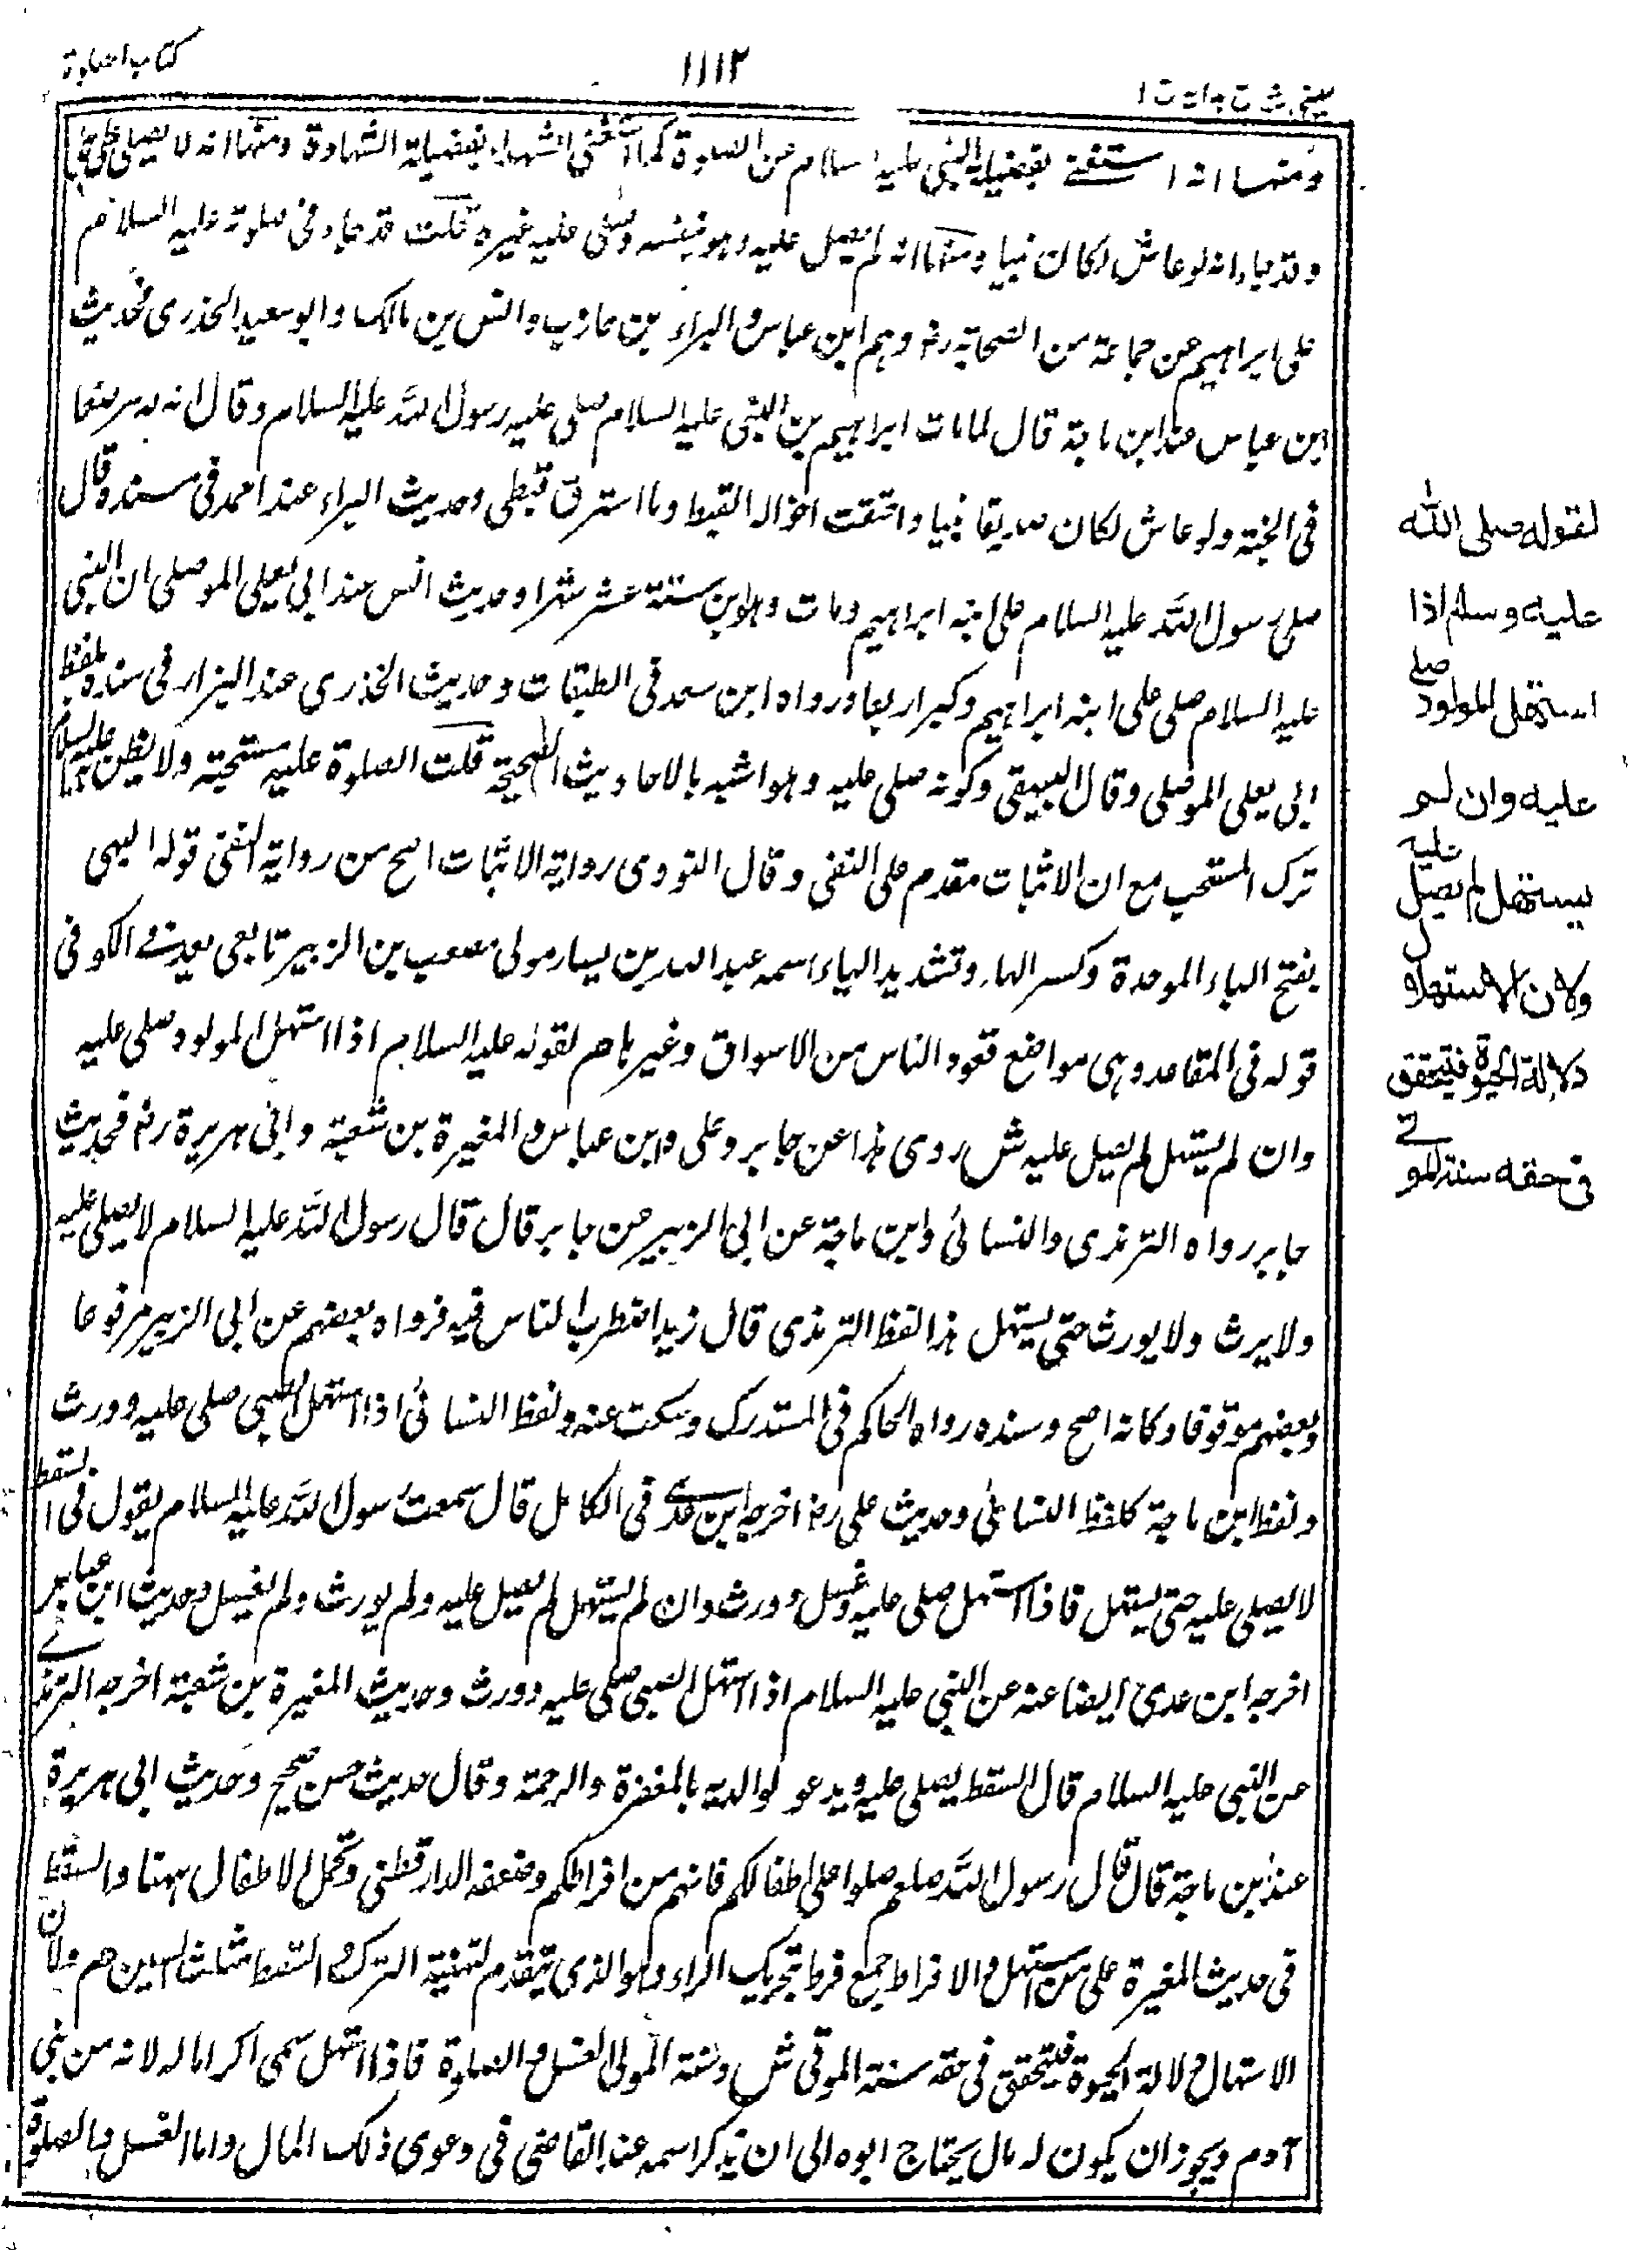 كتاب الصلوة
١١١٢
عینی شرح هدایة ج ا
ومنها انه استغنے بفضيلة النبي عليه السلام عن الصلوة كما استغنى الشهداء بفضيلة الشهادة ومنها انه لا يصلى نبي على نبي
وقد جاء انه لو عاش لكان نبيا ومنها انه لم يصل عليه وهو بنفسه وصلى عليه غيره قلت قد جاء في صلوته عليه السلام
على ابراهيم عن جماعة من الصحابة رض وهم ابن عباس والبراء بن عازب وانس بن مالك وابو سعيد الخدرى فحديث
ابن عباس عند ابن ماجة قال لما مات ابراهيم بن النبي عليه السلام صلى عليه رسول الله عليه السلام وقال انه له مرضعا
في الجنة ولو عاش لكان صديقا نبيا واعتقت اخواله القبط وما استرق قبطى وحديث البراء عند احمد في مسنده قال
صلى رسول الله عليه السلام على ابنه ابراهيم ومات وهو ابن ستة عشر شهرا وحديث انس عند ابى يعلى الموصلى ان النبي
عليه السلام صلى على ابنه ابراهيم وكبر اربعا ورواه ابن سعد في الطبقات وحديث الخدرى عند البزار في مسنده بلفظ
ابى يعلى الموصلى وقال البيهقي وكونه صلى عليه وهو اشبه بالاحاديث الصحيحة قلت الصلوة عليه مستحبة ولا يظن به عليه السلام
ترك المستحب مع ان الاثبات مقدم على النفى وقال النووى رواية الاثبات اصح من رواية النفى قوله البهى
بفتح الباء الموحدة وكسر الهاء وتشديد الياء اسمه عبد الله بن يسار مولى مصعب بن الزبير تابعى يعد فے الكوفى
قوله فى المقاعد وهى مواضع قعود الناس من الاسواق وغيرها هم لقوله عليه السلام اذا استهل المولود صلى عليه
وان لم يستهل لم يصل عليه ش روى هذا عن جابر وعلى وابن عباس والمغيرة بن شعبة وابى هريرة رض فحديث
جابر رواه الترمذى والنسائى وابن ماجة عن ابى الزبير عن جابر قال قال رسول الله عليه السلام لا يصلى عليه
ولا يرث ولا يورث حتى يستهل هذا لفظ الترمذى قال زيد اضطرب الناس فيه فرواه بعضهم عن ابى الزبير مرفوعا
وبعضهم موقوفا وكانه اصح وسنده رواه الحاكم فى المستدرك وسكت عنه ولفظ النسائى اذا استهل الصبى صلى عليه وورث
ولفظ ابن ماجة كلفظ النسائى وحديث على رض اخرجه ابن عدے فى الكامل قال سمعت رسول الله عليه السلام يقول فى السقط
لا يصلى عليه حتى يستهل فاذا استهل صلى عليه وغسل وورث وان لم يستهل لم يصل عليه ولم يورث ولم يغسل وحديث ابن عباس
اخرجه ابن عدى ايضا عنه عن النبي عليه السلام اذا استهل الصبى صلى عليه وورث وحديث المغيرة بن شعبة اخرجه الترمذے
عن النبي عليه السلام قال السقط يصلى عليه ويدعو لوالديه بالمغفرة والرحمة وقال حديث حسن صحيح وحديث ابى هريرة
عند ابن ماجة قال قال رسول الله صلعم صلوا على اطفالكم فانهم من افراطكم وضعفه الدارقطنى وتحمل الاطفال ههنا والسقط
فى حديث المغيرة على من استهل والافراط جمع فرط بتحريك الراء وهو الذى يتقدم لتهيئة النزل والسقط مثلث السين هم ولان
الاستهلال دلالة الحيوة فيتحقق فى حقه سنة الموتى ش وسنة الموتى الغسل والصلوة فاذا استهل سمى اكراما له لانه من بنى
آدم ويجوز ان يكون له مال يحتاج ابوه الى ان يذكر اسمه عند القاضى فى دعوى ذلك المال واما الغسل والصلوة
لقوله صلى الله
عليه وسلم اذا
استهل المولود صلى
عليه وان لم
يستهل لم يصل عليه
ولان الاستهلال
دلالة الحيوة فيتحقق
فى حقه سنة الموتے